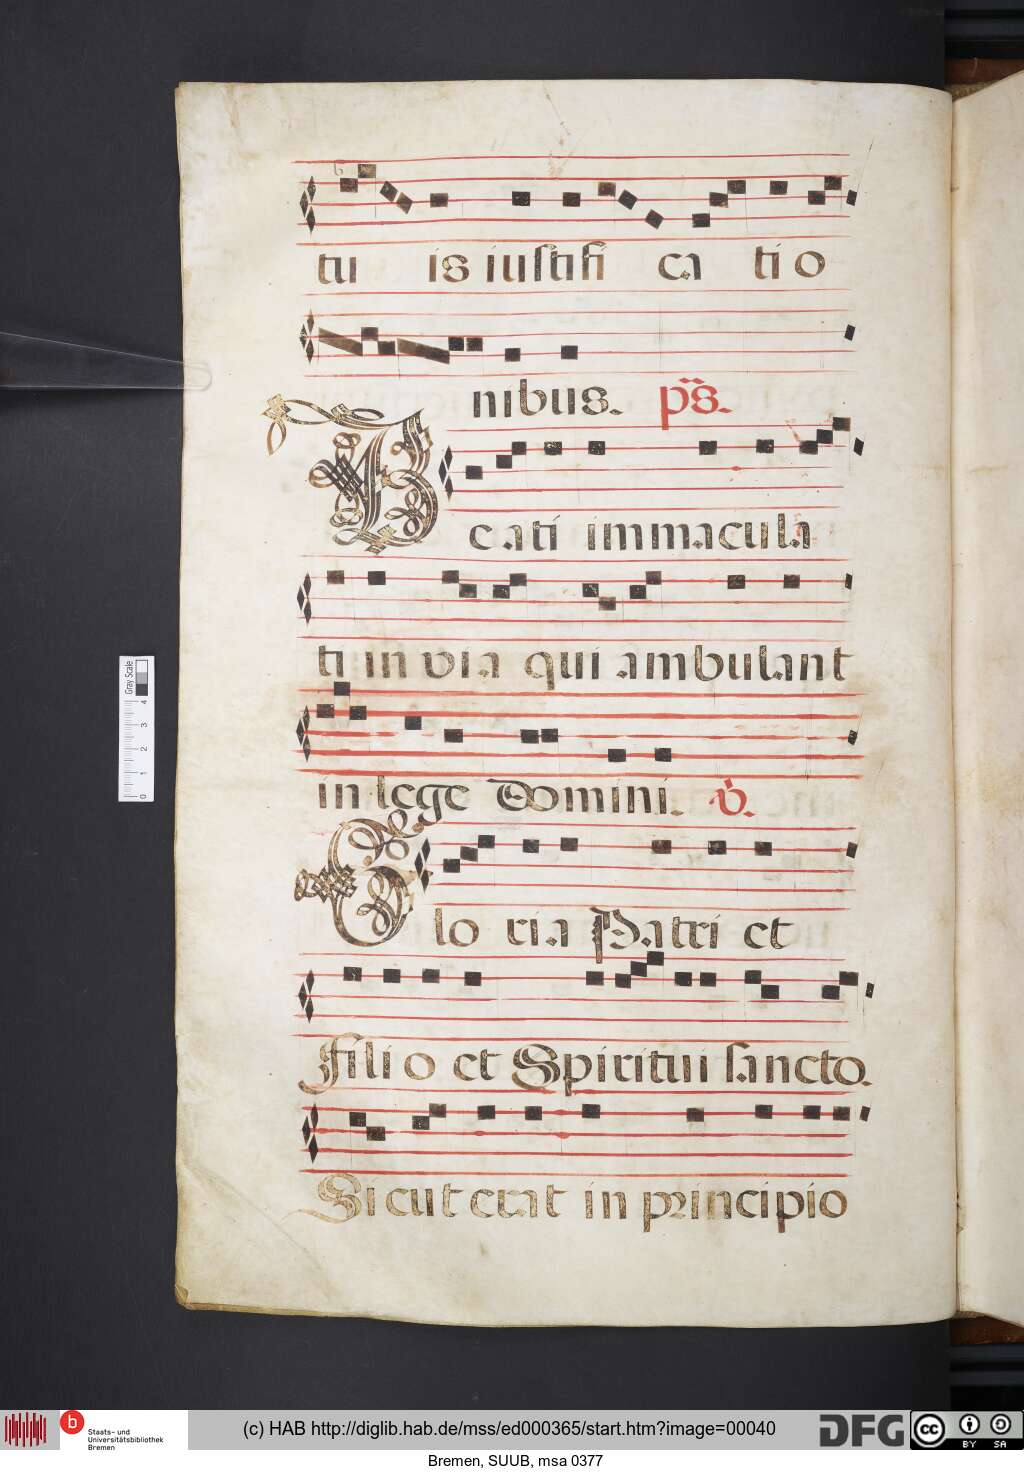 tu is iustifi ca tio
nibus. ps.
B
cati immacula
ti in via qui ambulant
in lege Domini. v.
G
lo ria Patri et
filio et Spiritui sancto.
Sicut erat in principio
Gray Scale
0 1 2 3 4
b Staats- und
Universitätsbibliothek
Bremen
(c) HAB http://diglib.hab.de/mss/ed000365/start.htm?image=00040
DFG
cc BY SA
Bremen, SUUB, msa 0377